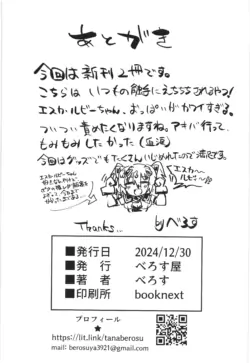 あとがき
今回は新刊2冊です。
こちらは いつもの触手にえちえちされるやつ!
エスカ・ルビーちゃん、おっぱいがカワイすぎる。
ついつい責めたくなりますね。アキバ行って、
もみもみしたかった(血涙)
今回はグッズでもたくさんいじめれたので満足です。
エスカ・ルビーちゃん
エスカ〜
ルビ〜
Thanks... byべろす
■発行日 2024/12/30
■発行 べろす屋
■著者 べろす
■印刷所 booknext
プロフィール
★
https://lit.link/tanaberosu
mail: berosuya3921@gmail.com